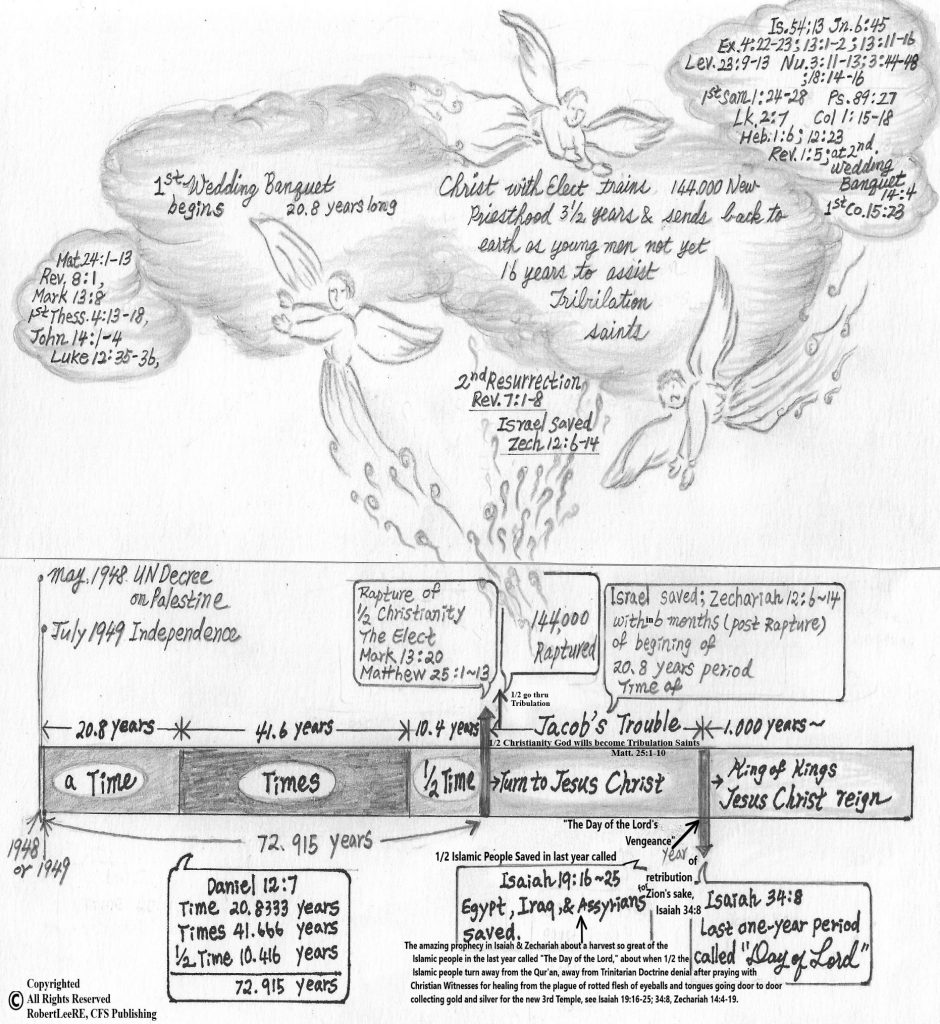 Is.54:13 Jn.6:45
Ex.4:22-23; 13:1-2; 13:11-16
Lev.23:9-13 Nu.3:11-13; 3:44-48
;18:14-16
1st Sam.1:24-28 Ps.89:27
Lk.2:7 Col 1:15-18
Heb.1:6; 12:23
Rev.1:5; at 2nd
Wedding
Banquet
14:4
1st Co.15:23
1st Wedding Banquet
begins 20.8 years long
Christ with Elect trains 144.000 New
Priesthood 3½ years & sends back to
earth as young men not yet
16 years to assist
Tribrilation
saints
Mat.24:1-13
Rev. 8:1,
Mark 13:8
1st Thess. 4:13-18,
John 14:1-4
Luke 12:35-36,
2nd Resurrection
Rev. 7:1-8
Israel saved
Zech 12:6-14
may.1948 UN Decree
on Palestine
July 1949 Independence
Rapture of
½ Christianity
The Elect
Mark 13:20
Matthew 25:1~13
144,000
Raptured
Israel saved; Zechariah 12:6~14
within 6 months (post Rapture)
of begining of
20.8 years period
Time of
1/2 go thru
Tribulation
20.8 years
41.6 years
10.4 years
Jacob's Trouble
1.000 years~
1/2 Christianity God wills become Tribulation Saints
Matt. 25:1-10
a Time
Times
½ Time
Turn to Jesus Christ
King of Kings
Jesus Christ reign
72.915 years
1948
or 1949
"The Day of the Lord's
Vengeance"
year of
retribution
for Zion's sake,
Isaiah 34:8
1/2 Islamic People Saved in last year called
Daniel 12:7
Time 20.8333 years
Times 41.666 years
½ Time 10.416 years
72.915 years
Isaiah 19:16~25
Egypt, Iraq, & Assyrians
saved.
Isaiah 34:8
Last one-year period
called "Day of Lord"
The amazing prophecy in Isaiah & Zechariah about a harvest so great of the
Islamic people in the last year called "The Day of the Lord," about when 1/2 the
Islamic people turn away from the Qur'an, away from Trinitarian Doctrine denial after praying with
Christian Witnesses for healing from the plague of rotted flesh of eyeballs and tongues going door to door
collecting gold and silver for the new 3rd Temple, see Isaiah 19:16-25; 34:8, Zechariah 14:4-19.
Copyrighted
© All Rights Reserved
RobertLeeRE, CFS Publishing